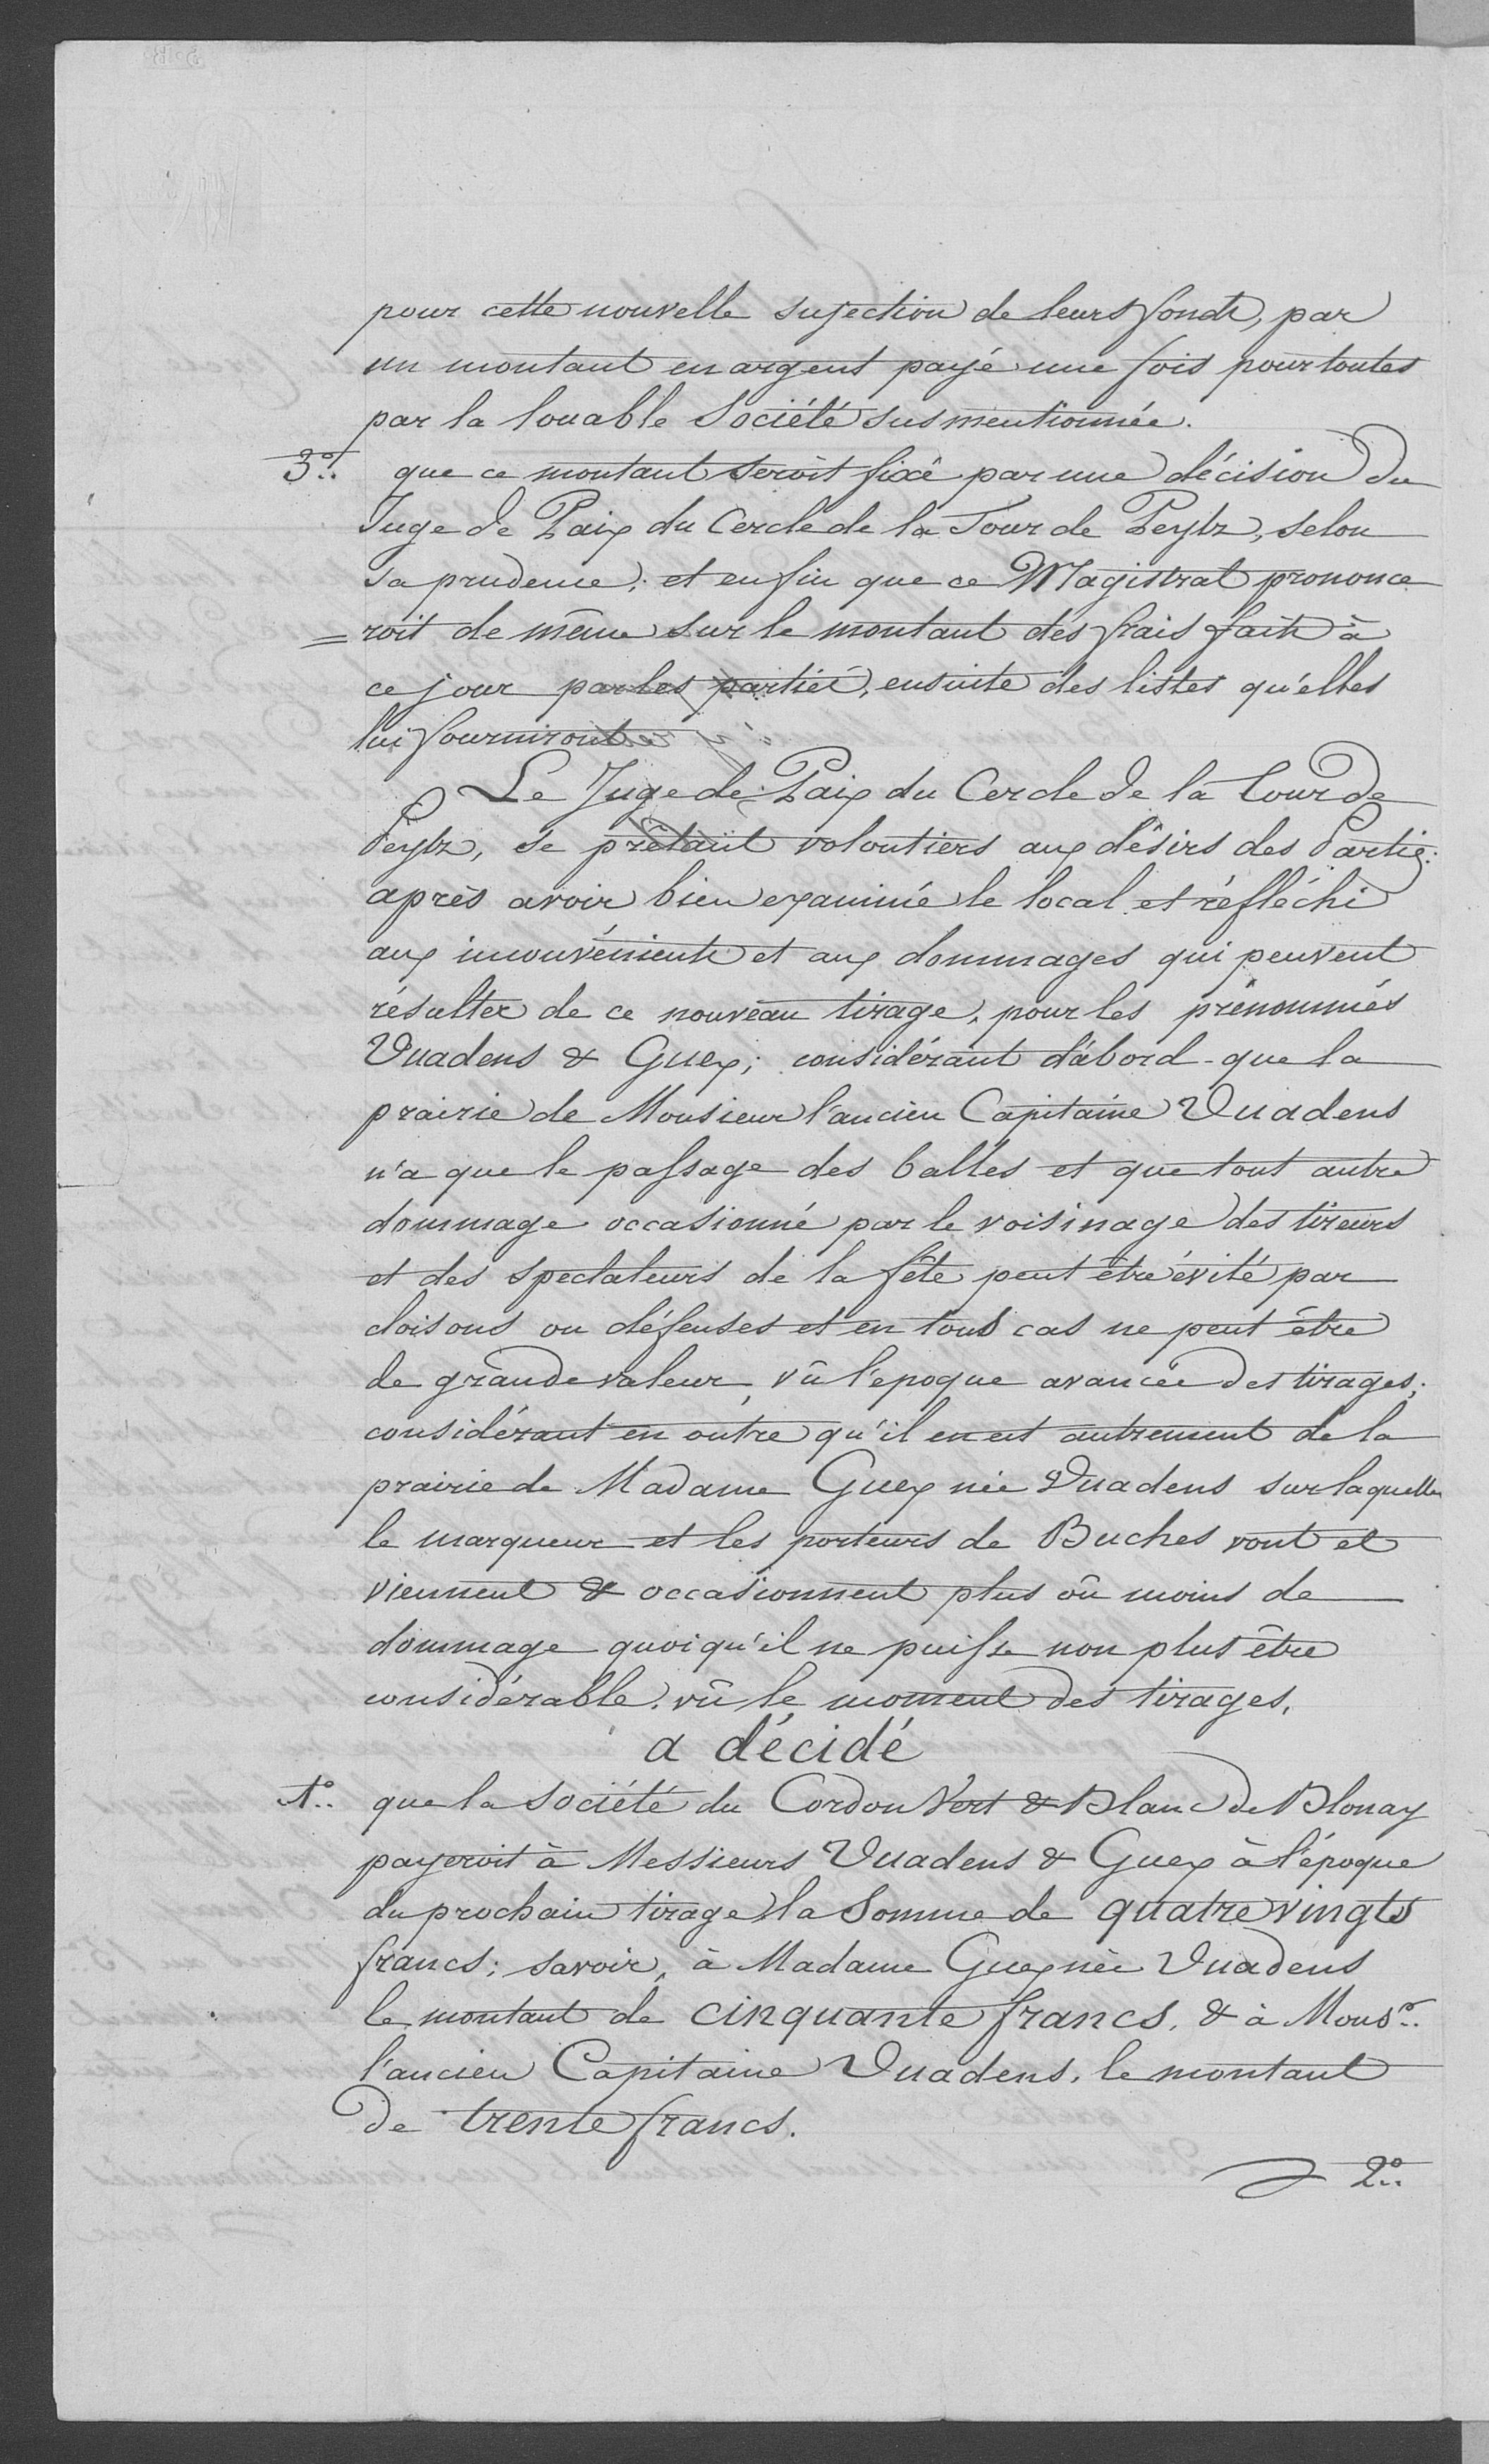 pour cette nouvelle sujection de leurs fonds, par
un montant en argent payé une fois pour toutes
par la louable Société susmentionnée.
3º que ce montant seroit fixé par une décision du
Juge de Paix du Cercle de la Tour de Peylz, selon
sa prudence; et enfin que ce Magistrat prononce
=roit de même sur le montant des frais faits à
ce jour par les parties, ensuite des listes qu'elles
lui fourniront
Le Juge de Paix du Cercle de la Tour de
Peylz, se prêtant volontiers aux désirs des Partie:
après avoir bien examiné le local et réfléchi
aux inconvénients et aux dommages qui peuvent
résulter de ce nouveau tirage, pour les prénommés
Vuadens & Guex; considérant d'abord que la
prairie de Monsieur l'ancien Capitaine Vuadens
n'a que le passage des balles et que tout autre
dommage occasionné par le voisinage des tireurs
et des spectateurs de la fête peut être évité par
cloisons ou défenses et en tous cas ne peut être
de grande valeur, vû l'époque avancée des tirages;
considérant en outre qu'il en est autrement de la
prairie de Madame Guex née Vuadens sur laquelle
le marqueur et les porteurs de Buches vont et
viennent & occasionnent plus où moins de
dommage quoiqu'il ne puisse non plus être
considérable, vû le moment des tirages,
a décidé
1º que la Société du Cordon Vert & Blanc de Blonay
payeroit à Messieurs Vuadens & Guex à l'époque
du prochain tirage la Somme de quatre vingts
francs; savoir, à Madame Guex née Vuadens
le montant de cinquante francs, & à Monsr
l'ancien Capitaine Vuadens, le montant
de trente francs.
2º